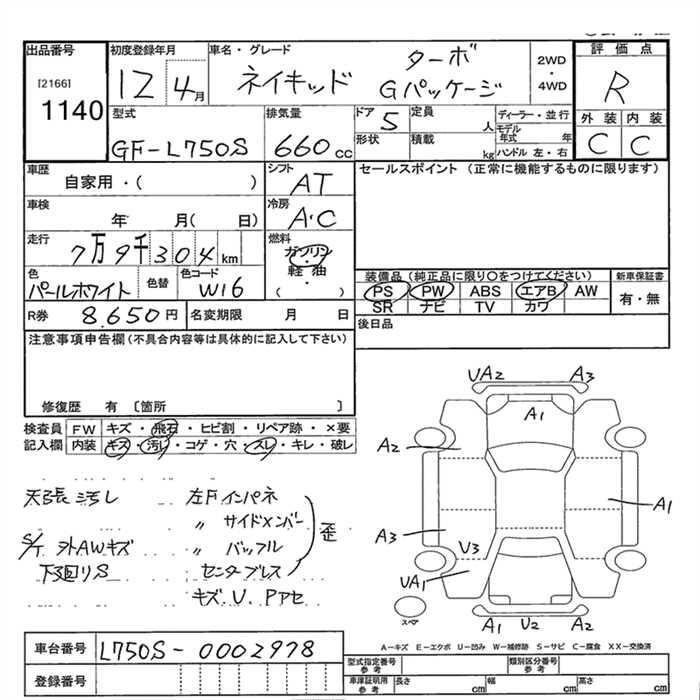 出品番号
[2166]
1140
初度登録年月
12 4月
車名・グレード
ネイキッド
ターボ
Gパッケージ
2WD
・
4WD
評価点
R
外装 内装
C C
型式
GF-L750S
排気量
660 cc
ドア 5
形状
定員 人
積載 kg
ディーラー・並行
モデル年式 年
ハンドル 左・右
車歴
自家用・( )
シフト
AT
車検
年 月( 日)
冷房
A・C
走行
7万9千304km
燃料
ガソリン
軽・油
( )
色
パールホワイト
色替
色コード
W16
R券 8,650円
名変期限 月 日
セールスポイント (正常に機能するものに限ります)
装備品(純正品に限り〇をつけてください)
PS PW ABS エアB AW
SR ナビ TV カワ
新車保証書
有・無
後日品
注意事項申告欄(不具合内容等は具体的に記入して下さい)
修復歴 有 〔箇所 〕
検査員記入欄
FW キズ・飛石・ヒビ割・リペア跡・×要
内装 キズ・汚レ・コゲ・穴・スレ・キレ・破レ
天張汚し
S/T 外AWキズ
下廻りS
左Fインパネ
〃 サイドメンバー
〃 バッフル
歪
センタープレス
キズ U. Pアセ
UA2 A3
A1
A2
A1
A3
V3
UA1
スペア
A1 U2 A2
A-キズ E-エクボ U-凹み W-補修跡 S-サビ C-腐食 XX-交換済
車台番号 L750S-0002978
登録番号
型式指定番号 参考
類別区分番号 参考
車庫証明用 参考
長さ cm
幅 cm
高さ cm